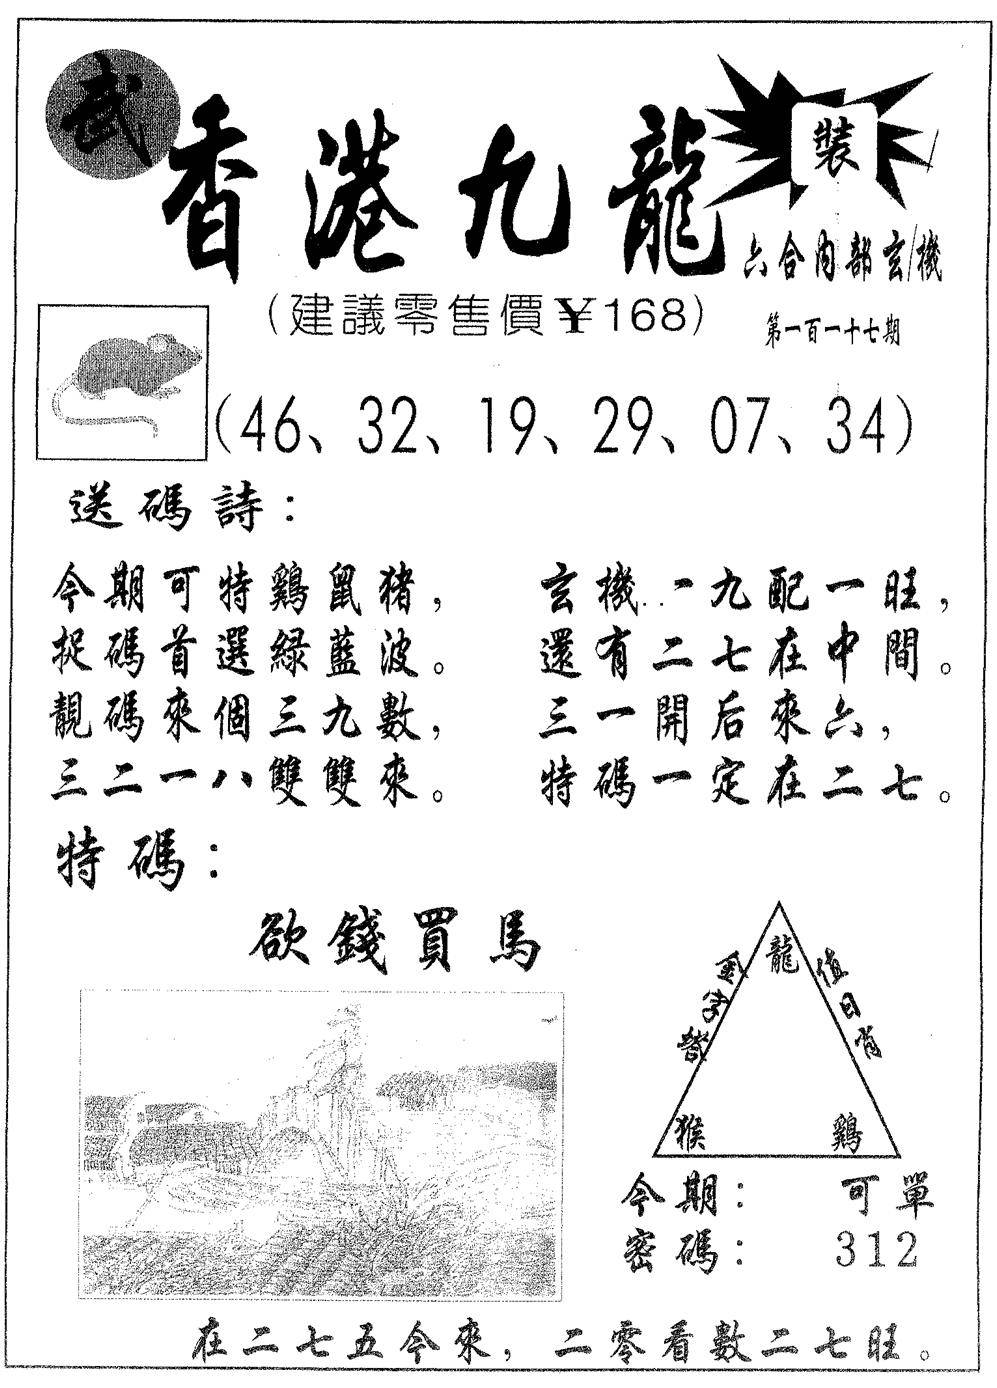 武
香港九龍
裝
六合內部玄機
(建議零售價¥168)
第一百一十七期
(46、32、19、29、07、34)
送碼詩：
今期可特鷄鼠猪，
捉碼首選綠藍波。
靚碼來個三九數，
三二一八雙雙來。
玄機一九配一旺，
還有二七在中間。
三一開后來六，
特碼一定在二七。
特碼：
欲錢買馬
龍
值日肖
猴
鷄
今期：可單
密碼：312
在二七五今來，二零看數二七旺。